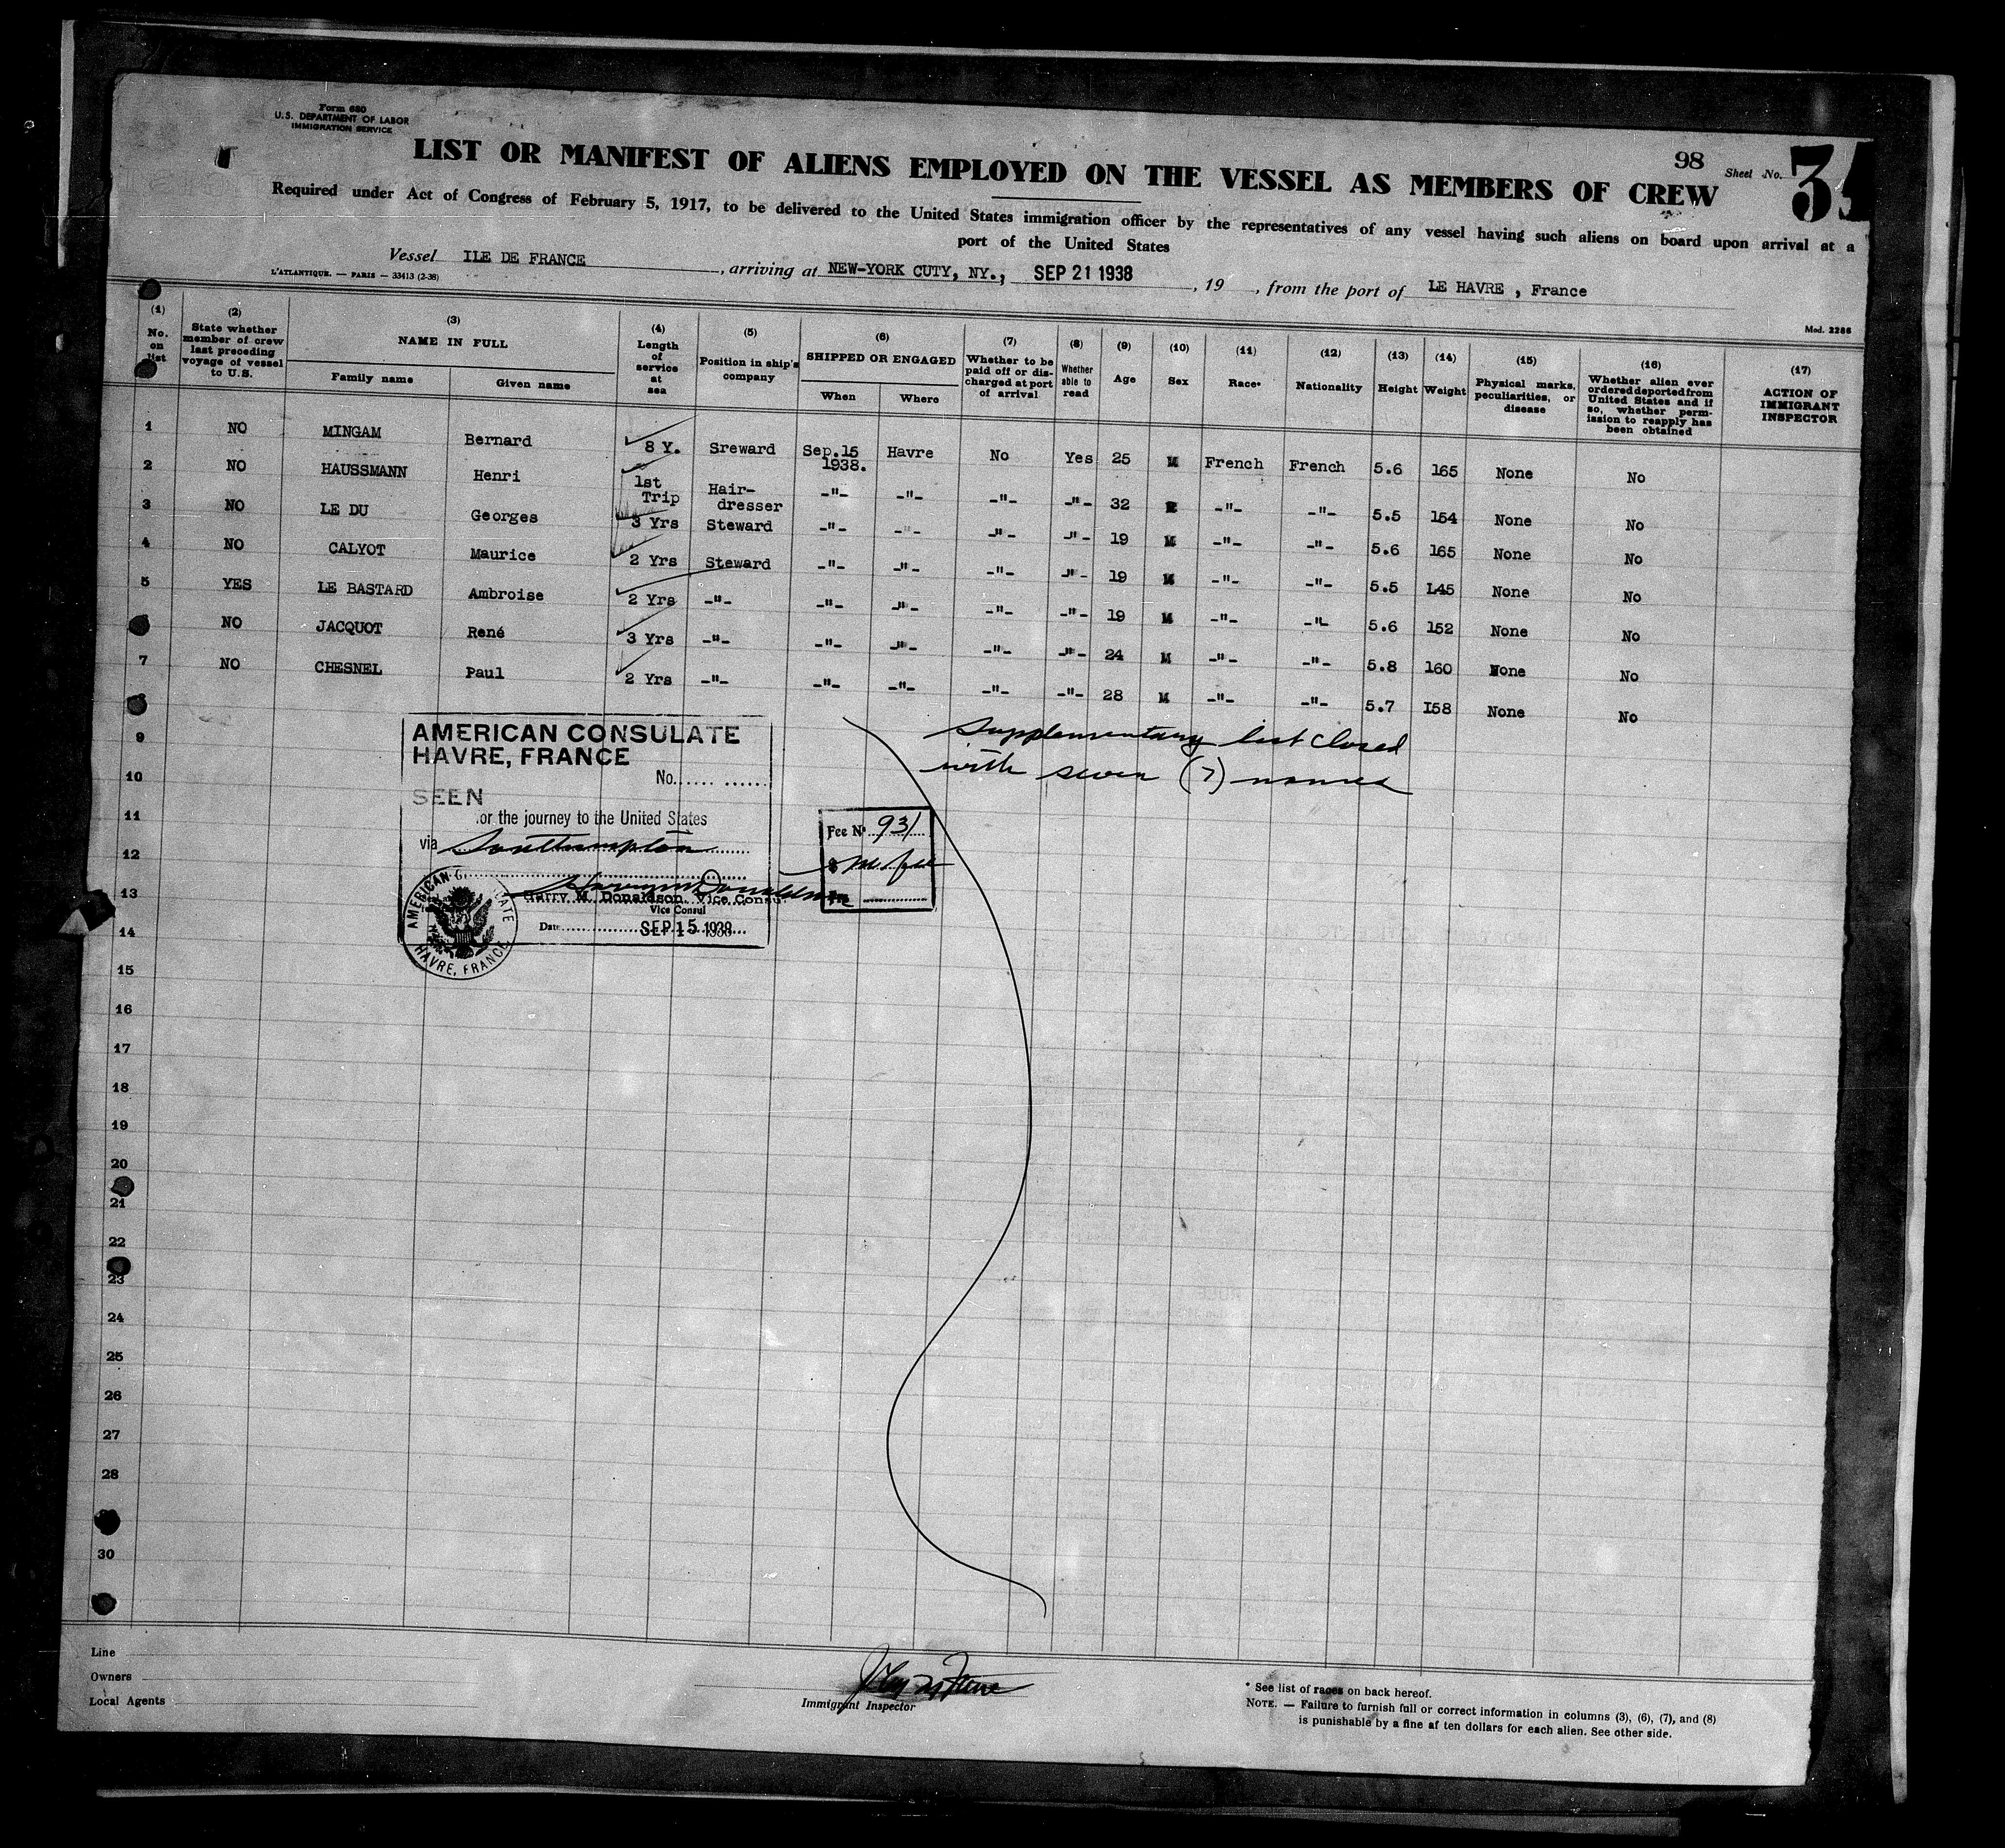 Form 680
U.S. DEPARTMENT OF LABOR
IMMIGRATION SERVICE
98 Sheet No.
LIST OR MANIFEST OF ALIENS EMPLOYED ON THE VESSEL AS MEMBERS OF CREW
Required under Act of Congress of February 5, 1917, to be delivered to the United States immigration officer by the representatives of any vessel having such aliens on board upon arrival at a
port of the United States
Vessel ILE DE FRANCE, arriving at NEW-YORK CUTY, NY., SEP 21 1938, 19 , from the port of LE HAVRE , France
L'ATLANTIQUE. — PARIS — 33413 (2-38)
Mod. 2286
(1) No. on list
(2) State whether member of crew last preceding voyage of vessel to U.S.
(3) NAME IN FULL
Family name Given name
(4) Length of service at sea
(5) Position in ship's company
(6) SHIPPED OR ENGAGED
When Where
(7) Whether to be paid off or discharged at port of arrival
(8) Whether able to read
(9) Age
(10) Sex
(11) Race*
(12) Nationality
(13) Height
(14) Weight
(15) Physical marks, peculiarities, or disease
(16) Whether alien ever ordered deported from United States and if so, whether permission to reapply has been obtained
(17) ACTION OF IMMIGRANT INSPECTOR
1 NO MINGAM Bernard 8 Y. Sreward Sep.15 1938. Havre No Yes 25 M French French 5.6 165 None No
2 NO HAUSSMANN Henri 1st Trip Hair-dresser -"- -"- -"- -"- 32 -"- -"- 5.5 154 None No
3 NO LE DU Georges 3 Yrs Steward -"- -"- -"- -"- 19 M -"- -"- 5.6 165 None No
4 NO CALYOT Maurice 2 Yrs Steward -"- -"- -"- -"- 19 M -"- -"- 5.5 L45 None No
5 YES LE BASTARD Ambroise 2 Yrs -"- -"- -"- -"- -"- 19 M -"- -"- 5.6 152 None No
NO JACQUOT René 3 Yrs -"- -"- -"- -"- -"- 24 M -"- -"- 5.8 160 None No
7 NO CHESNEL Paul 2 Yrs -"- -"- -"- -"- -"- 28 M -"- -"- 5.7 I58 None No
9
10
11
12
13
14
15
16
17
18
19
20
21
22
23
24
25
26
27
28
30
Supplementary list closed
with seven (7) names
AMERICAN CONSULATE
HAVRE, FRANCE
No.
SEEN
or the journey to the United States
via Southampton
Harry M. Donaldson
Harry M. Donaldson, Vice Consul
Vice Consul
Date SEP 15 1938
AMERICAN CONSULATE HAVRE, FRANCE
Fee No 931
No fee
Line
Owners
Local Agents
Immigrant Inspector
* See list of races on back hereof.
NOTE. — Failure to furnish full or correct information in columns (3), (6), (7), and (8)
is punishable by a fine af ten dollars for each alien. See other side.